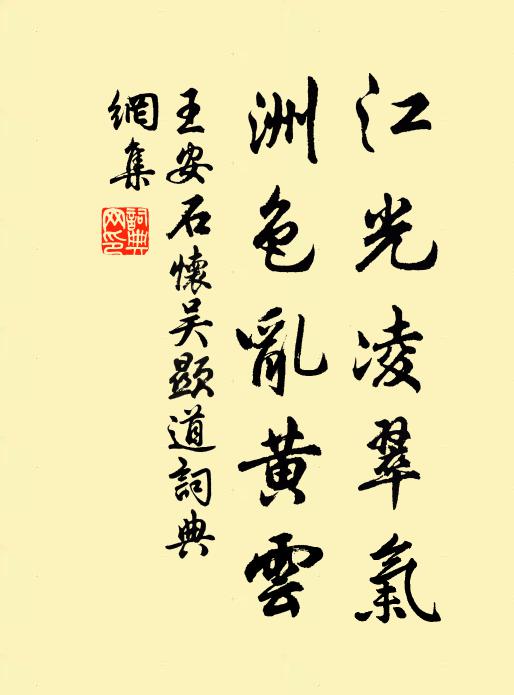 江光凌翠氣
洲色亂黃雲
王安石懷吴顯道詞典
網集
詞典網印